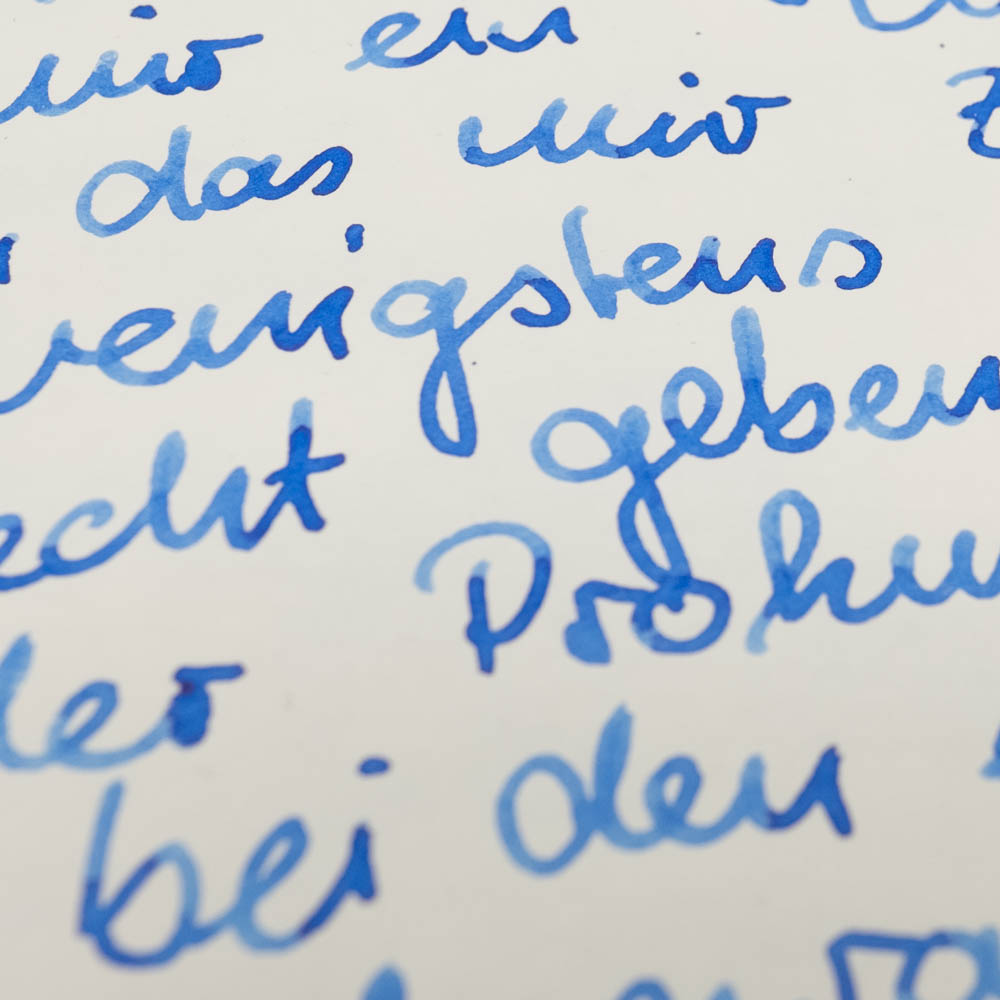 mir ein
das mir
wenigstens
echt geben
der
bei den